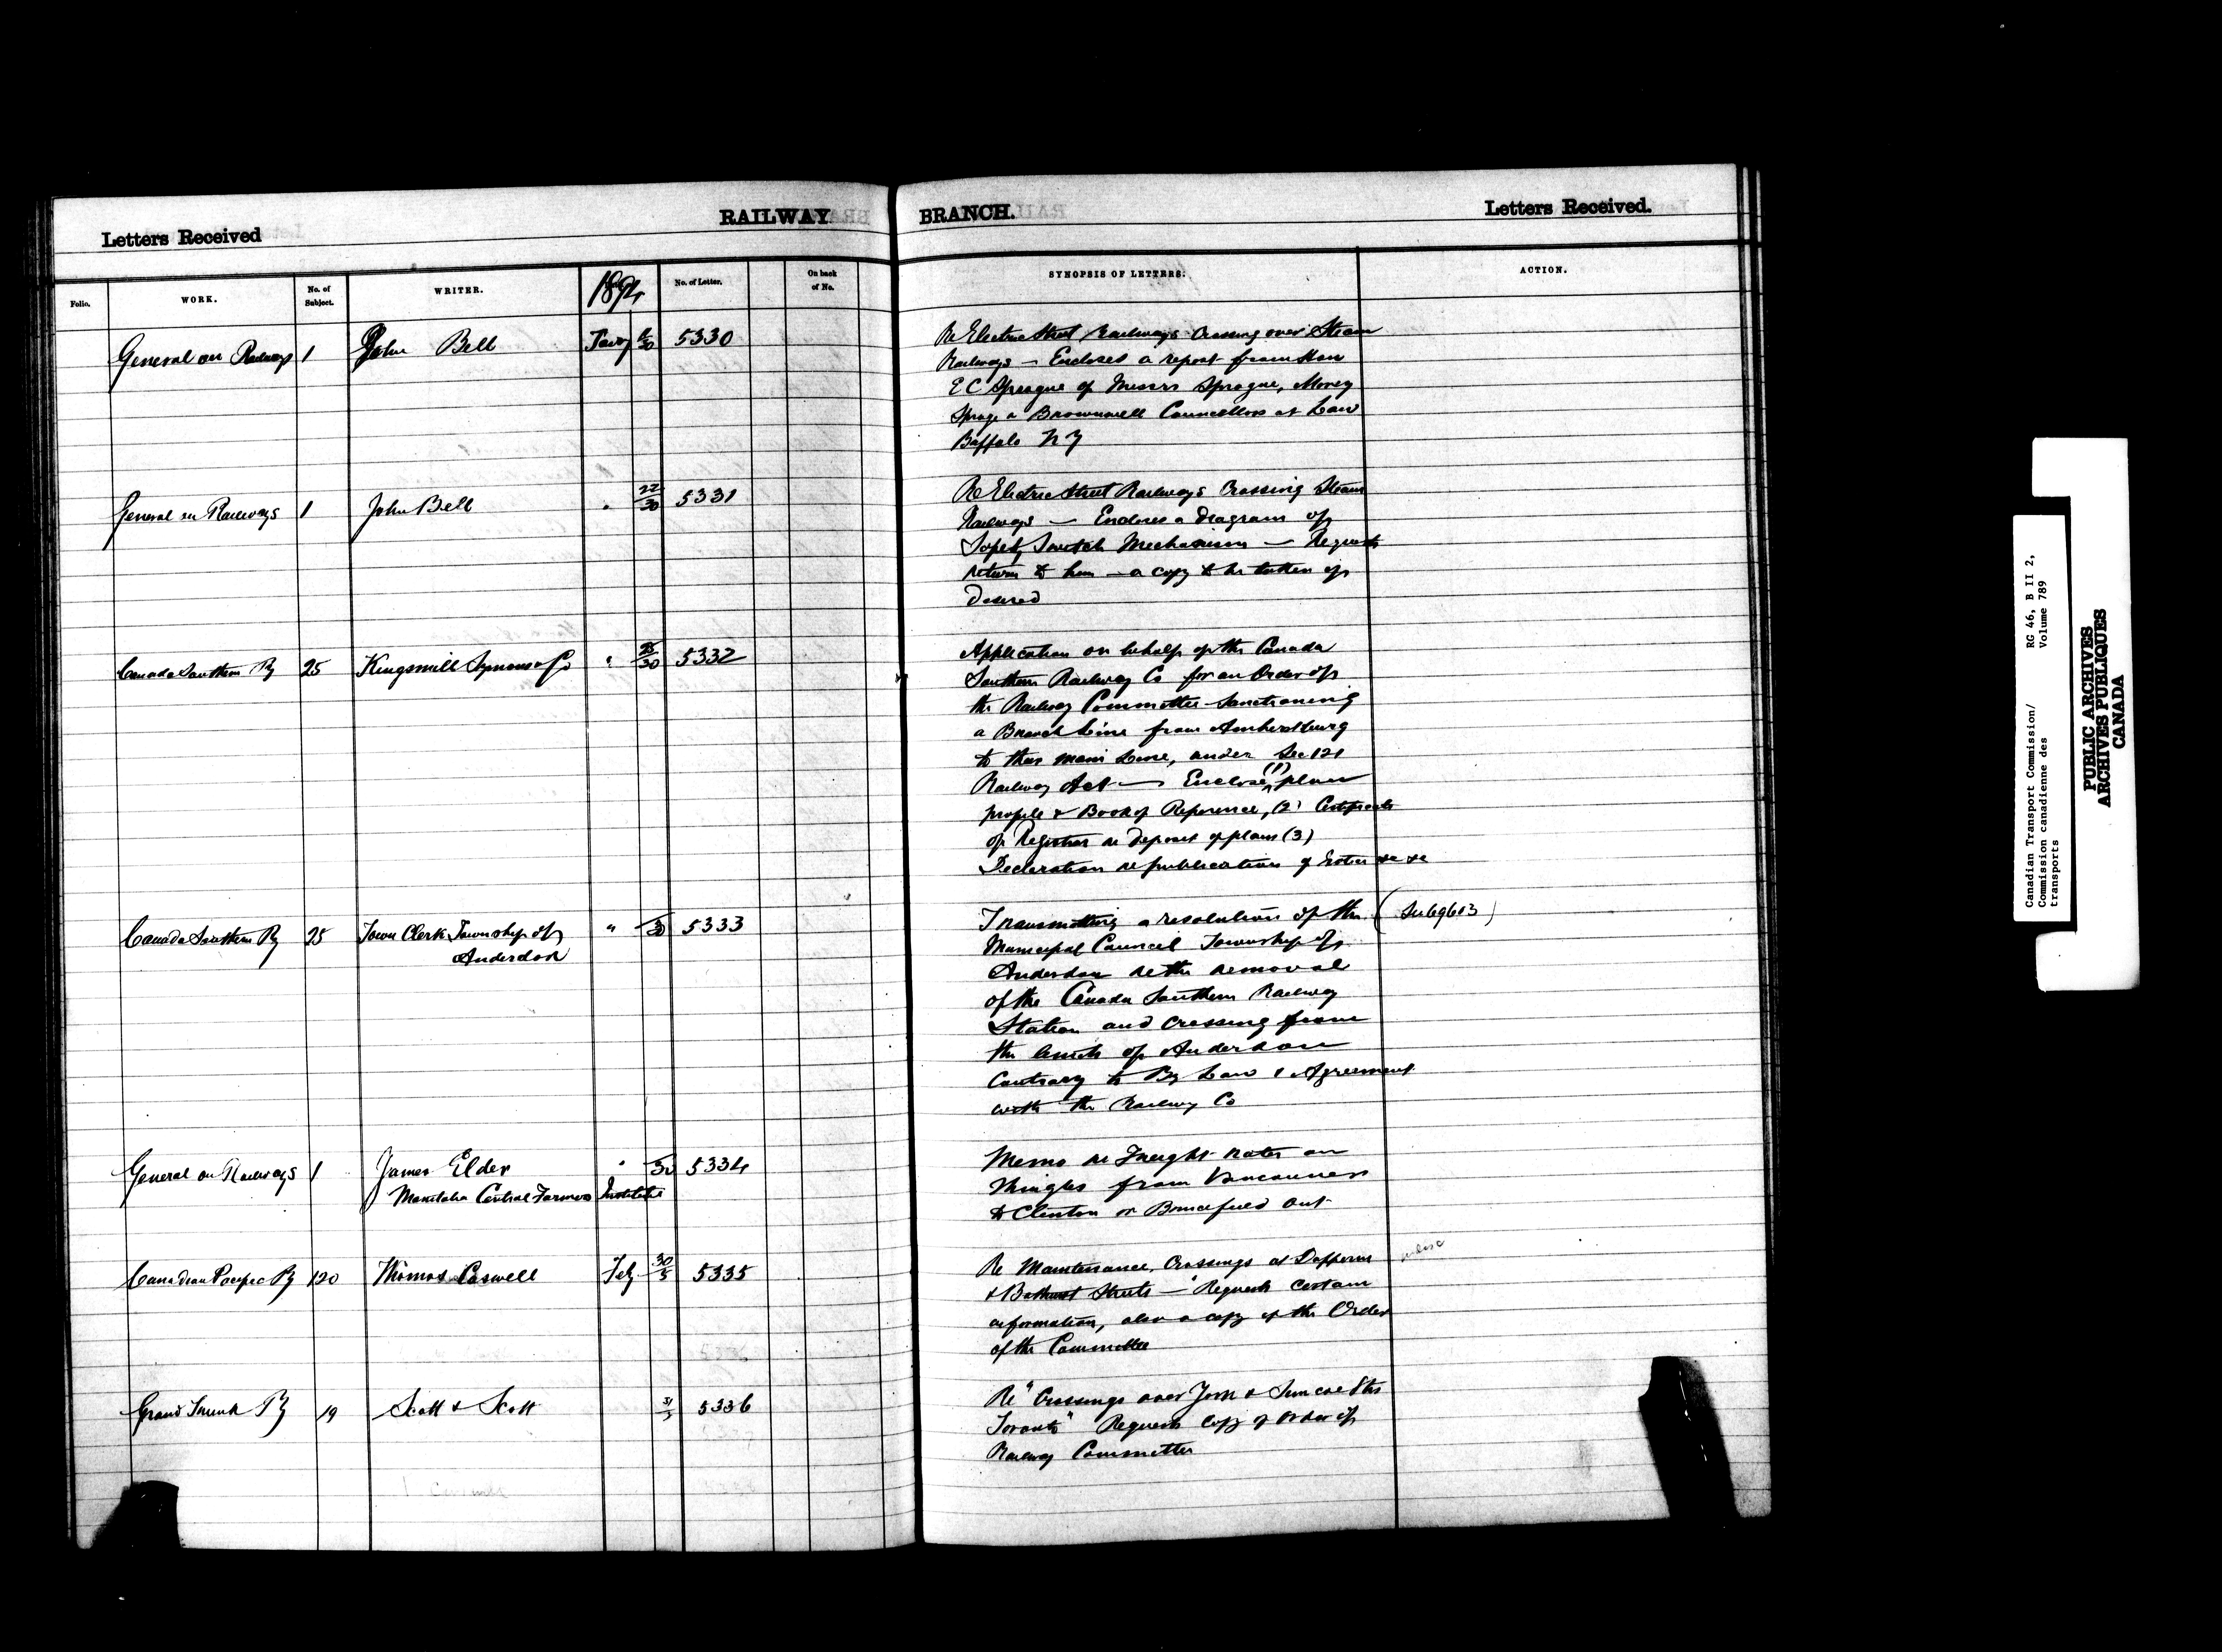 RAILWAY BRANCH.
Letters Received
Letters Received.
Folio. WORK. No. of Subject. WRITER. 1894 No. of Letter. On back of No. SYNOPSIS OF LETTERS. ACTION.
General on Railways 1 John Bell Jany 30 5330
Re Electric Street Railways Crossing over Steam
Railways — Encloses a report from Hon
E C Sprague of Messrs Sprague, Morey
Sprague & Brownell Councellors at Law
Buffalo N Y
General on Railways 1 John Bell " 22/30 5331
Re Electric Street Railways Crossing Steam
Railways — Encloses a diagram of
Safety Switch Mechanism — Requests
return to him — a copy to be taken if
desired
Canada Southern Ry 25 Kingsmill Symons & Co " 25/30 5332
Application on behalf of the Canada
Southern Railway Co for an Order of
the Railway Committee Sanctioning
a Branch Line from Amherstburg
to their main Line, under Sec 121
Railway Act — Encloses (1) plan
profile & Book of Reference, (2) Certificate
of Registrar re deposit of plans (3)
Declaration re publication of notice &c &c
Canada Southern Ry 25 Town Clerk Township of " 30 5333
Anderdon
Transmitting a resolution of the (Sub 9613)
Municipal Council Township of
Anderdon re the removal
of the Canada Southern Railway
Station and crossing from
the limits of Anderdon
Contrary to By Law & Agreement
with the Railway Co
General on Railways 1 James Elder " 30 5334
Manitoba Central Farmers Institute
Memo re Freight rates on
Shingles from Vancouver
to Clinton or Brucefield Ont
Canadian Pacific Ry 120 Thomas Caswell Feby 30/5 5335
Re Maintenance, Crossings at Dufferin
& Bathurst Streets — Requests certain
information, also a copy of the Order
of the Committee
Grand Trunk Ry 19 Scott & Scott 31/5 5336
Re "Crossings over York & Simcoe Sts
Toronto" Requests copy of Order of
Railway Committee
Canadian Transport Commission/ RG 46, B II 2,
Commission canadienne des Volume 789
transports
PUBLIC ARCHIVES
ARCHIVES PUBLIQUES
CANADA